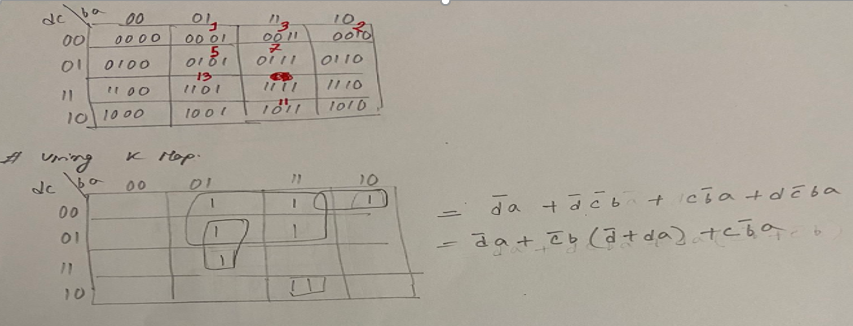 dc \ ba 00 01 11 10
1 3 2
00 0000 0001 0011 0010
5 7
01 0100 0101 0111 0110
13
11 1100 1101 1111 1110
11
10 1000 1001 1011 1010
# Using K Map.
dc \ ba 00 01 11 10
00 1 1 1
01 1 1
11 1
10 1
= d̅a + d̅c̅b + cb̅a + dc̅ba
= d̅a + c̅b (d̅+da) + cb̅a